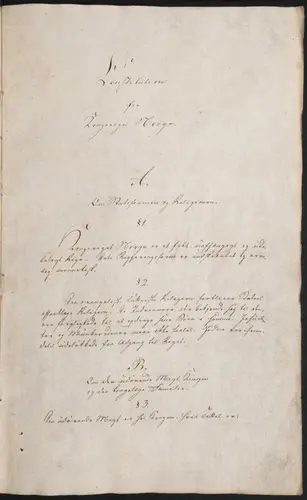 Constitution
for
Kongeriget Norge.
A.
Om Statsformen og Religionen.
§ 1.
Kongeriget Norge er et frit, uafhængigt og ude-
leligt Rige. Regjeringsform er indskrænket og arve-
lig monarkisk.
§ 2.
Den evangelisk lutherske Religion forbliver Statens
offentlige Religion. De Indvaanere der bekjende sig til den,
ere forpligtede til at opdrage sine Børn i samme. Jesuiter
og Munkeordener maae ikke taales. Jøder ere frem-
deles udelukkede fra Adgang til Riget.
B.
Om den udøvende Magt, Kongen
og den kongelige Familie.
§ 3.
Den udøvende Magt er hos Kongen.